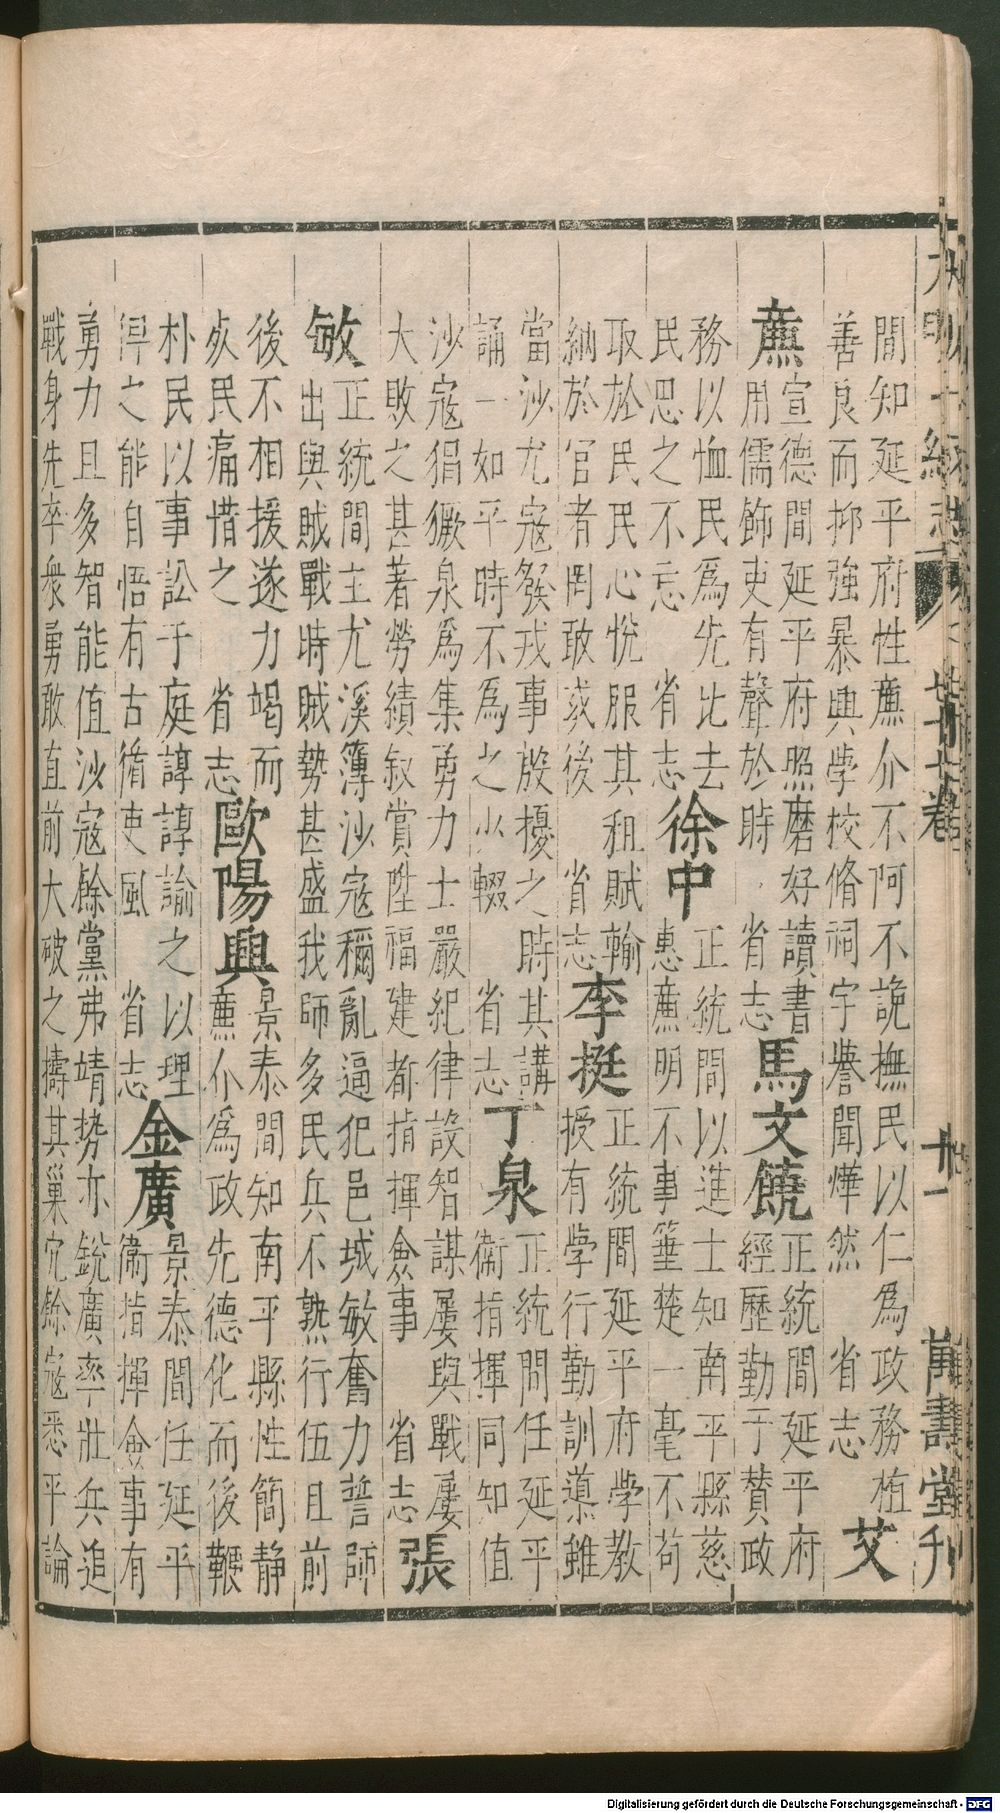 大明一統志
萬壽堂刊
間知延平府性廉介不阿不詭撫民以仁為政務植
善良而抑強暴興學校脩祠宇譽聞燁然 省志
艾
廉
宣德間延平府照磨好讀書
用儒飾吏有聲於時 省志
馬文饒
正統間延平府
經歷勤于贊政
務以恤民為先比去
民思之不忘 省志
徐中
正統間以進士知南平縣慈
惠廉明不事箠楚一毫不苟
取於民民心悅服其租賦輸
納於官者罔敢或後 省志
李挺
正統間延平府學教
授有學行勤訓導雖
當沙尤寇發戎事殷擾之時其講
誦一如平時不為之少輟 省志
丁泉
正統間任延平
衛指揮同知值
沙寇猖獗泉為集勇力士嚴紀律設智謀屢與戰屢
大敗之甚著勞績叙賞陞福建都指揮僉事 省志
張
敏
正統間主尤溪簿沙寇稱亂逼犯邑城敏奮力誓師
出與賊戰時賊勢甚盛我師多民兵不熟行伍且前
後不相援遂力竭而
死民痛惜之 省志
歐陽興
景泰間知南平縣性簡靜
廉介為政先德化而後鞭
朴民以事訟于庭諄諄諭之以理
俾之能自悟有古循吏風 省志
金廣
景泰間任延平
衛指揮僉事有
勇力且多智能值沙寇餘黨弗靖勢亦銳廣率壯兵追
戰身先卒衆勇敢直前大破之擣其巢穴餘寇悉平論
Digitalisierung gefördert durch die Deutsche Forschungsgemeinschaft - DFG